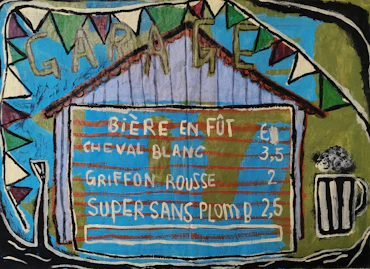 GARAGE
BIÈRE EN FÛT €
CHEVAL BLANC 3,5
GRIFFON ROUSSE 2
SUPER SANS PLOMB 2,5